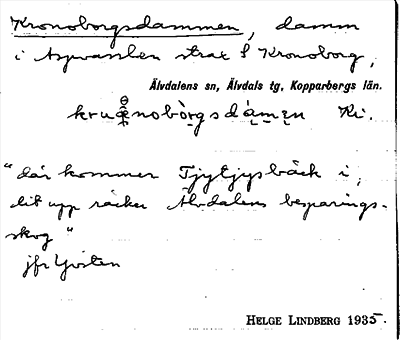 Kronoborgsdammen, damm
i strax S Kronoborg,
Älvdalens sn, Älvdals tg, Kopparbergs län.
Ki.
"där kommer Tjyljysbäck i,
dit upp räcker Älvdalens besparings-
skog"
jfr
HELGE LINDBERG 1935.